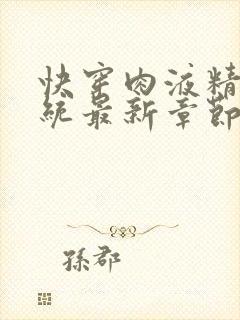 快穿肉液精
统最新章节
孫郡